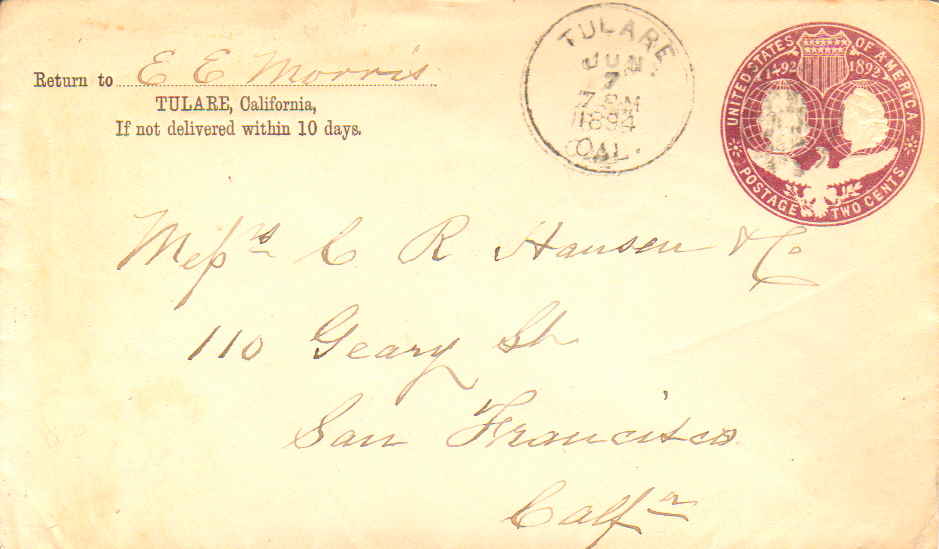 Return to E E Morris
TULARE, California,
If not delivered within 10 days.
TULARE,
JUN
7
7 PM
1894
CAL.
UNITED·STATES OF AMERICA
1492 1892
POSTAGE TWO CENTS
Messrs C R Hansen & Co
110 Geary St
San Francisco
Calfa